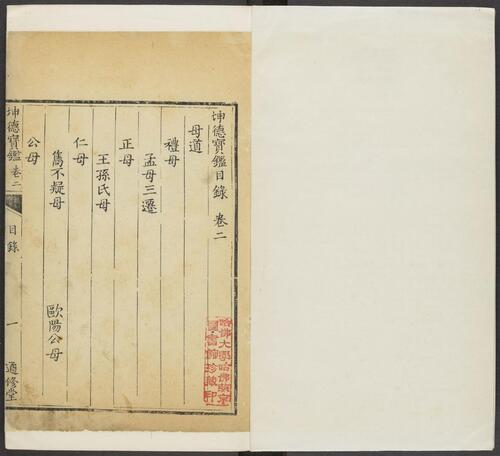 坤德寶鑑目錄 卷二
母道
禮母
孟母三遷
正母
王孫氏母
仁母
雋不疑母 歐陽公母
公母
坤德寶鑑 卷二 目錄 一 適修堂
哈佛大學哈佛燕京圖書館珍藏印